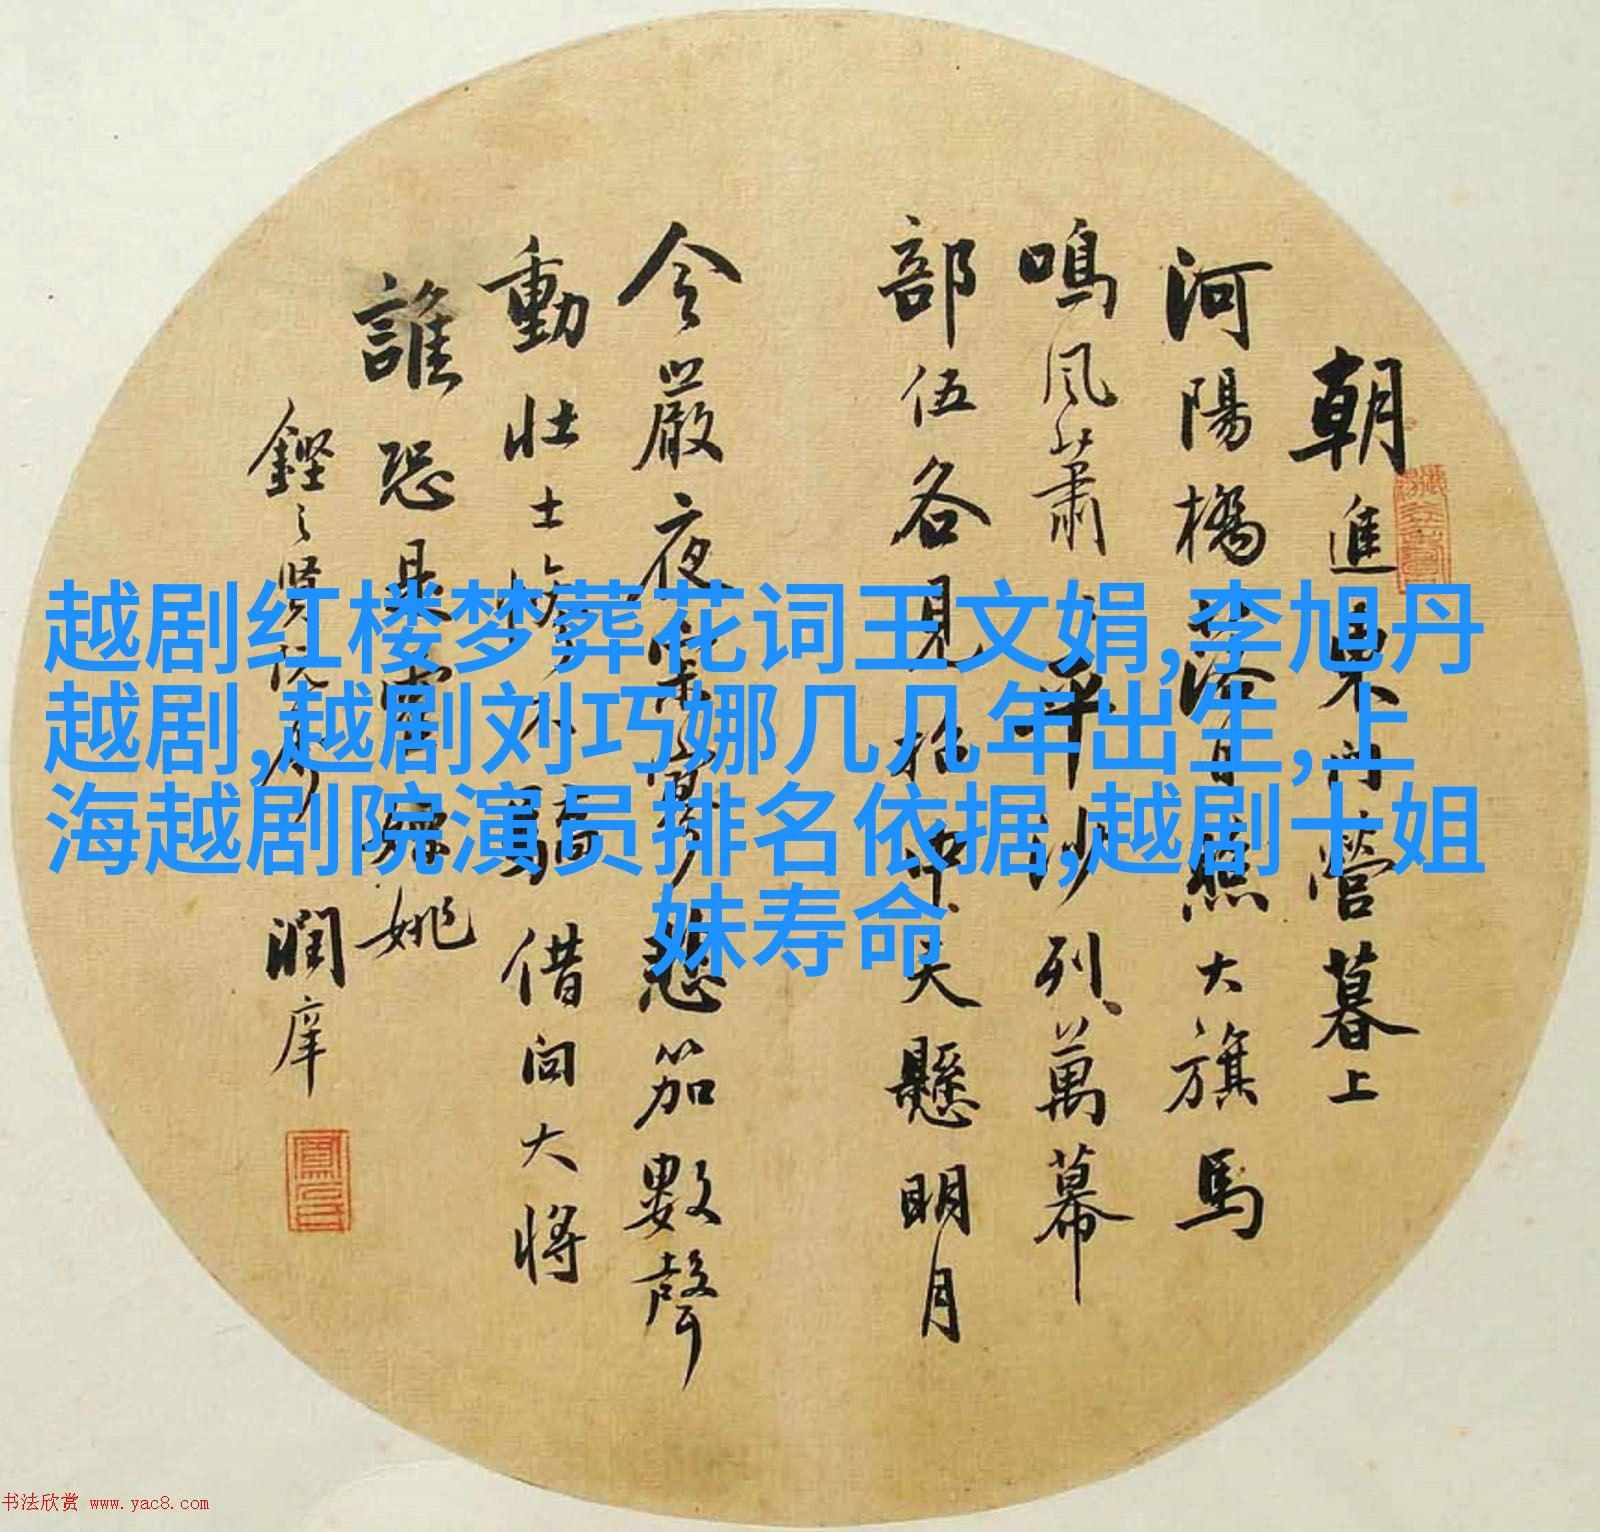 朝進東門營暮上
河陽橋落日照大旗馬
鳴風蕭蕭平沙列萬幕
部伍各見招中天懸明月
令嚴夜寂寥悲笳數聲
動壯士慘不驕借問大將
誰恐是霍嫖姚
賢阮 潤庠
越剧红楼梦葬花词王文娟,李旭丹
越剧,越剧刘巧娜几几年出生,上
海越剧院演员排名依据,越剧十姐
妹寿命
书法欣赏 www.yac8.com